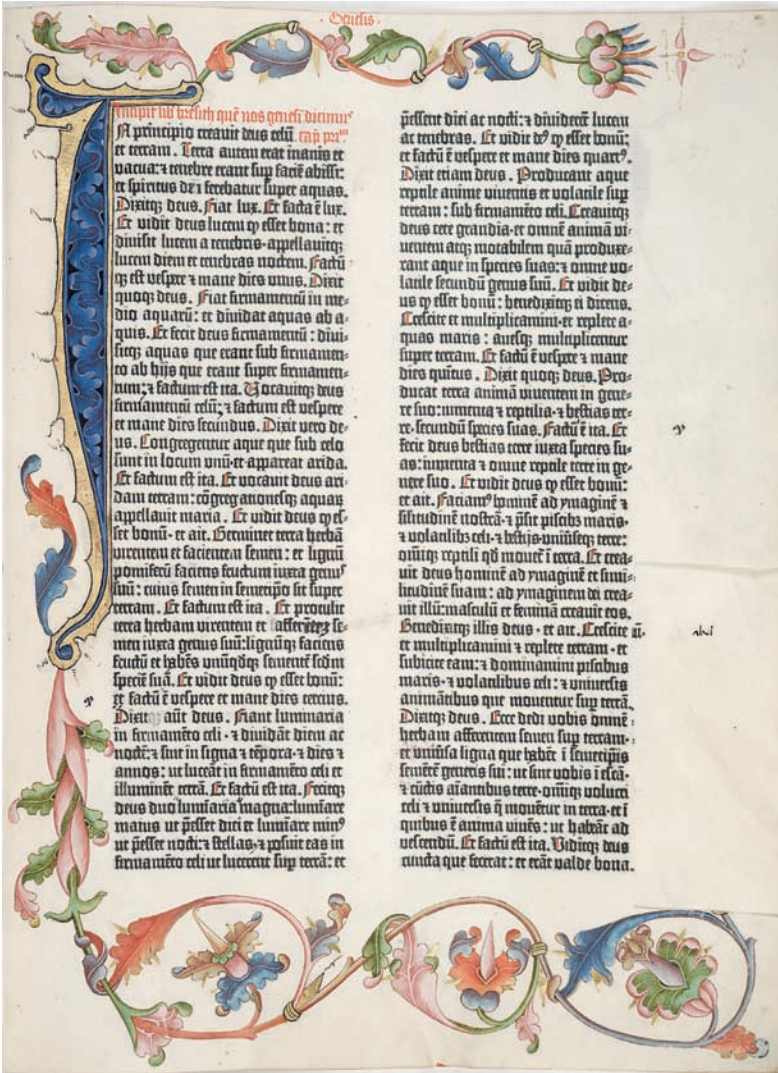 Genesis
Incipit liber bresith quē nos genesim dicimus
In principio creavit deus celū
et terram. Terra autem erat inanis et
vacua: ⁊ tenebre erant sup faciē abissi:
et spiritus dei ferebatur super aquas.
Dixitq; deus. Fiat lux. Et facta ē lux.
Et vidit deus lucem ꝙ esset bona: et
divisit lucem a tenebris· appellavitq;
lucem diem et tenebras noctem. Factū
q; est vespere ⁊ mane dies unus. Dixit
quoq; deus. Fiat firmamentū in me⸗
dio aquarū: et dividat aquas ab a⸗
quis. Et fecit deus firmamentū: divi⸗
sitq; aquas que erant sub firmamen⸗
to ab hijs que erant super firmamen⸗
tum: ⁊ factum est ita. Vocavitq; deus
firmamentū celū: ⁊ factum est vespere
et mane dies secundus. Dixit vero de⸗
us. Congregentur aque que sub celo
sunt in locum unū· et appareat arida.
Et factum est ita. Et vocavit deus ari⸗
dam terram: cōgregationesq; aquarꝫ
appellavit maria. Et vidit deus ꝙ es⸗
set bonū· et ait. Germinet terra herbā
virentem et facientem semen: et lignū
pomiferū faciens fructum iuxta genus
suū: cuius semen in semetipo sit super
terram. Et factum est ita. Et protulit
terra herbam virentem et afferentem se⸗
men iuxta genus suū: lignūq; faciens
fructū et habēs unūqdq; sementē scdm
speciē suā. Et vidit deus ꝙ esset bonū:
et factū ē vespere et mane dies tercius.
Dixit aūt deus. Fiant luminaria
in firmamēto celi· ⁊ dividāt diem ac
noctē: ⁊ sint in signa ⁊ tēpora· ⁊ dies ⁊
annos: ut luceāt in firmamēto celi et
illuminēt terrā. Et factū est ita. Fecitq;
deus duo luminaria magna: luminare
maius ut pesset diei et luminare min⁹
ut pesset nocti: ⁊ stellas· ⁊ posuit eas in
firmamēto celi ut lucerent sup terrā: et
pessent diei ac nocti: ⁊ dividerēt lucem
ac tenebras. Et vidit de⁹ ꝙ esset bonū:
et factū ē vespere et mane dies quart⁹.
Dixit etiam deus. Producant aque
reptile anime viventis et volatile sup
terram: sub firmamēto celi. Creavitq;
deus cete grandia· et omnē animā vi⸗
ventem atq; motabilem quā produxe⸗
rant aque in species suas: ⁊ omne vo⸗
latile secundū genus suū. Et vidit de⸗
us ꝙ esset bonū: benedixitq; ei dicens.
Crescite et multiplicamini· et replete a⸗
quas maris: avesq; multiplicentur
super terram. Et factū ē vespere ⁊ mane
dies quintus. Dixit quoq; deus. Pro⸗
ducat terra animā viventem in gene⸗
re suo: iumenta ⁊ reptilia· ⁊ bestias ter⸗
re· secundū species suas. Factū ē ita. Et
fecit deus bestias terre iuxta species su⸗
as: iumenta ⁊ omne reptile terre in ge⸗
nere suo. Et vidit deus ꝙ esset bonū:
et ait. Faciam⁹ hominē ad ymaginē ⁊
silitudinē nostrā· ⁊ psit piscib⁹ maris·
⁊ volatilib⁹ celi· ⁊ bestijs· universeq; terre:
omīq; reptili qd movet ī terra. Et crea⸗
vit deus hominē ad ymaginē et simi⸗
litudinē suam: ad ymaginem dei crea⸗
vit illū: masculū et feminā creavit eos.
Benedixitq; illis deus· et ait. Crescite
et multiplicamini ⁊ replete terram· et
subicite eam: ⁊ dominamini piscibus
maris· ⁊ volatilibus celi: ⁊ universis
animātibus que moventur sup terrā.
Dixitq; deus. Ecce dedi vobis omnē
herbam afferentem semen sup terram·
et universa ligna que habēt ī semetipis
semētē generis sui: ut sint vobis ī escā·
⁊ cūctis aīantibus terre· omīq; volucri
celi ⁊ universis q̄ movētur in terra· et ī
quibus ē anima vivēs: ut habeāt ad
vescendū. Et factū est ita. Viditq; deus
cuncta que fecerat: et erāt valde bona.